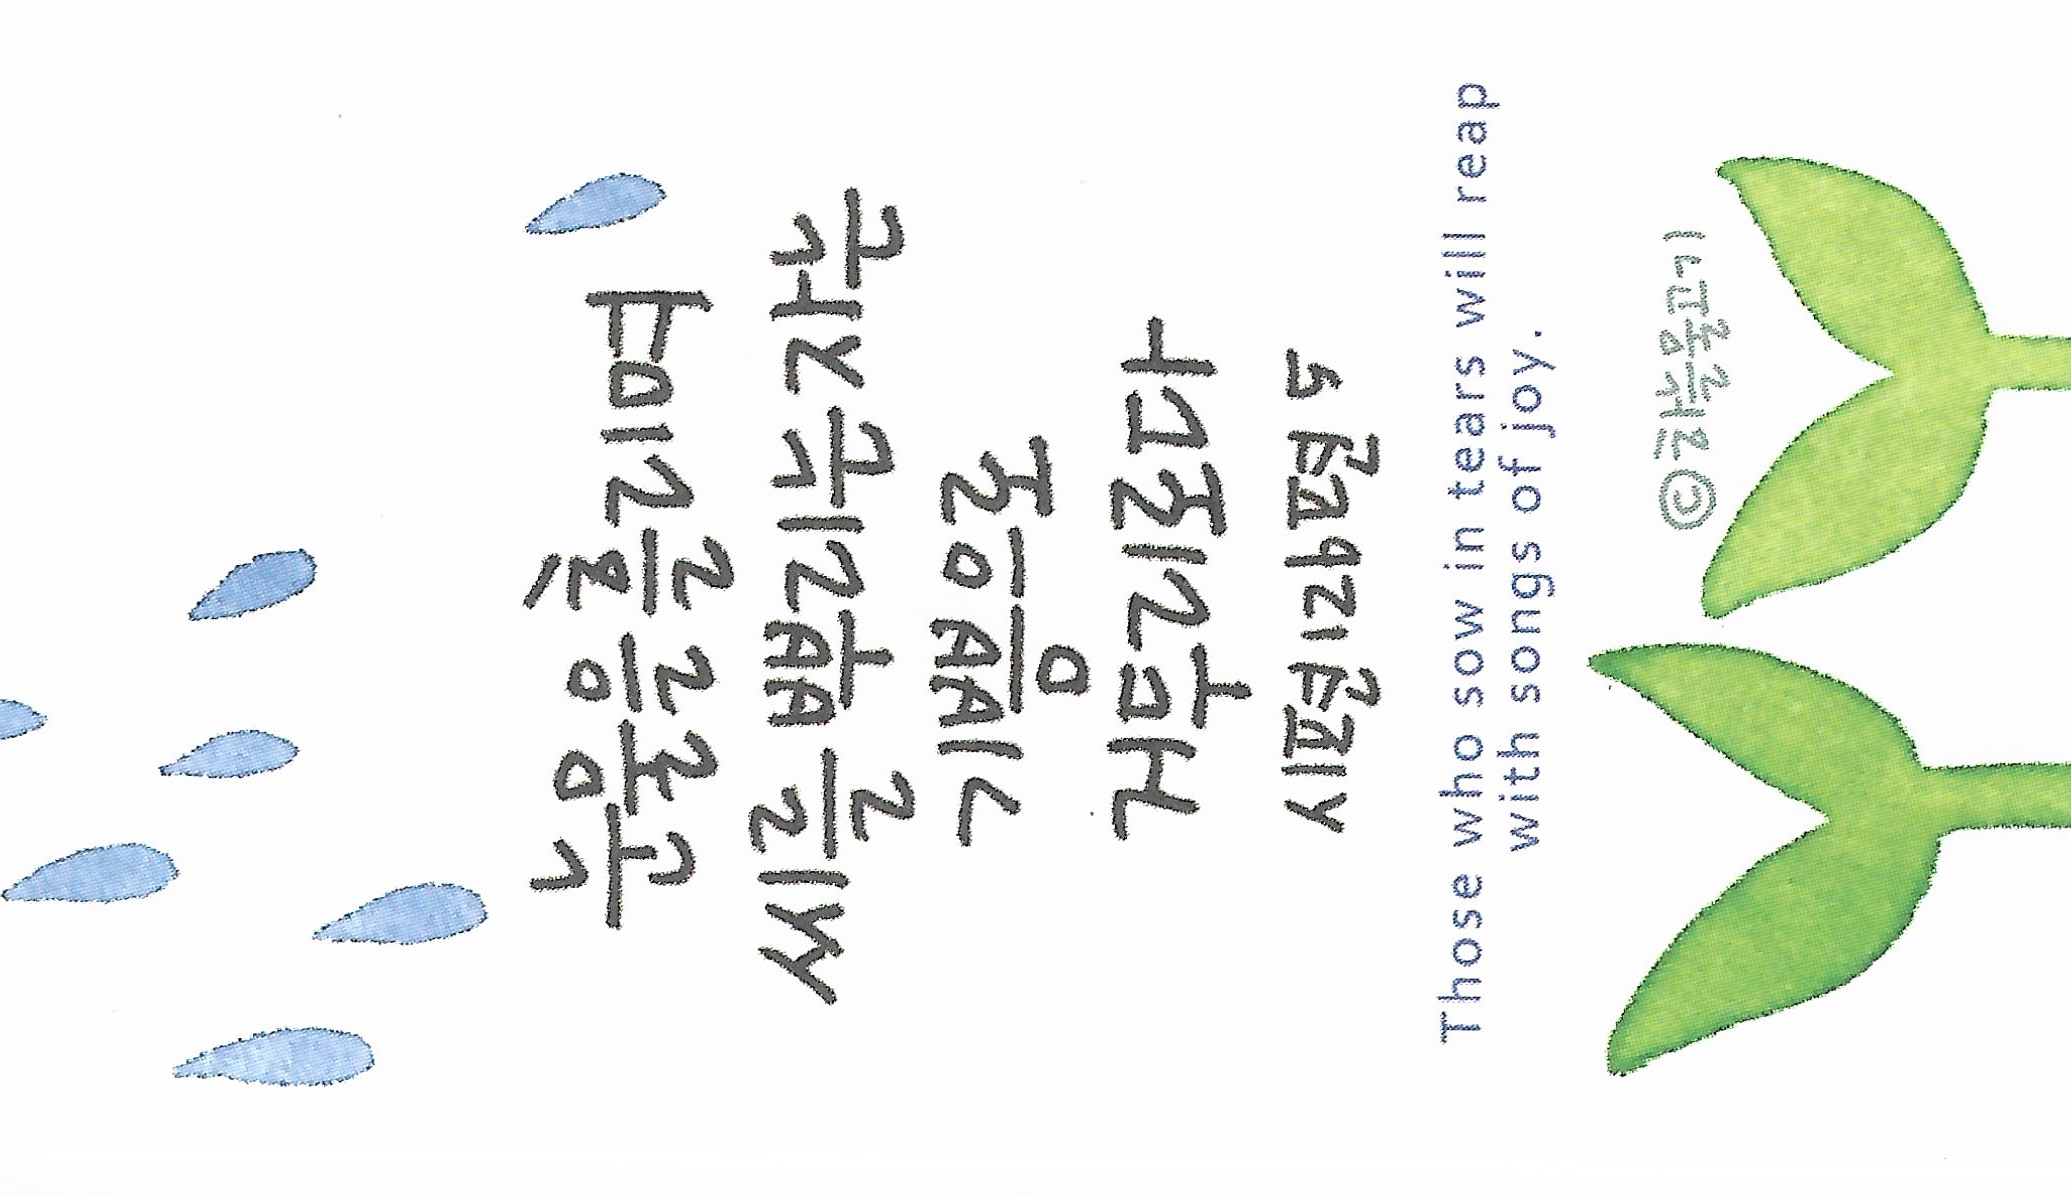 눈물을 흘리며
씨를 뿌리는 자는
기쁨으로
거두리로다
시편 126편 5
Those who sow in tears will reap
with songs of joy.
©하늘물고기